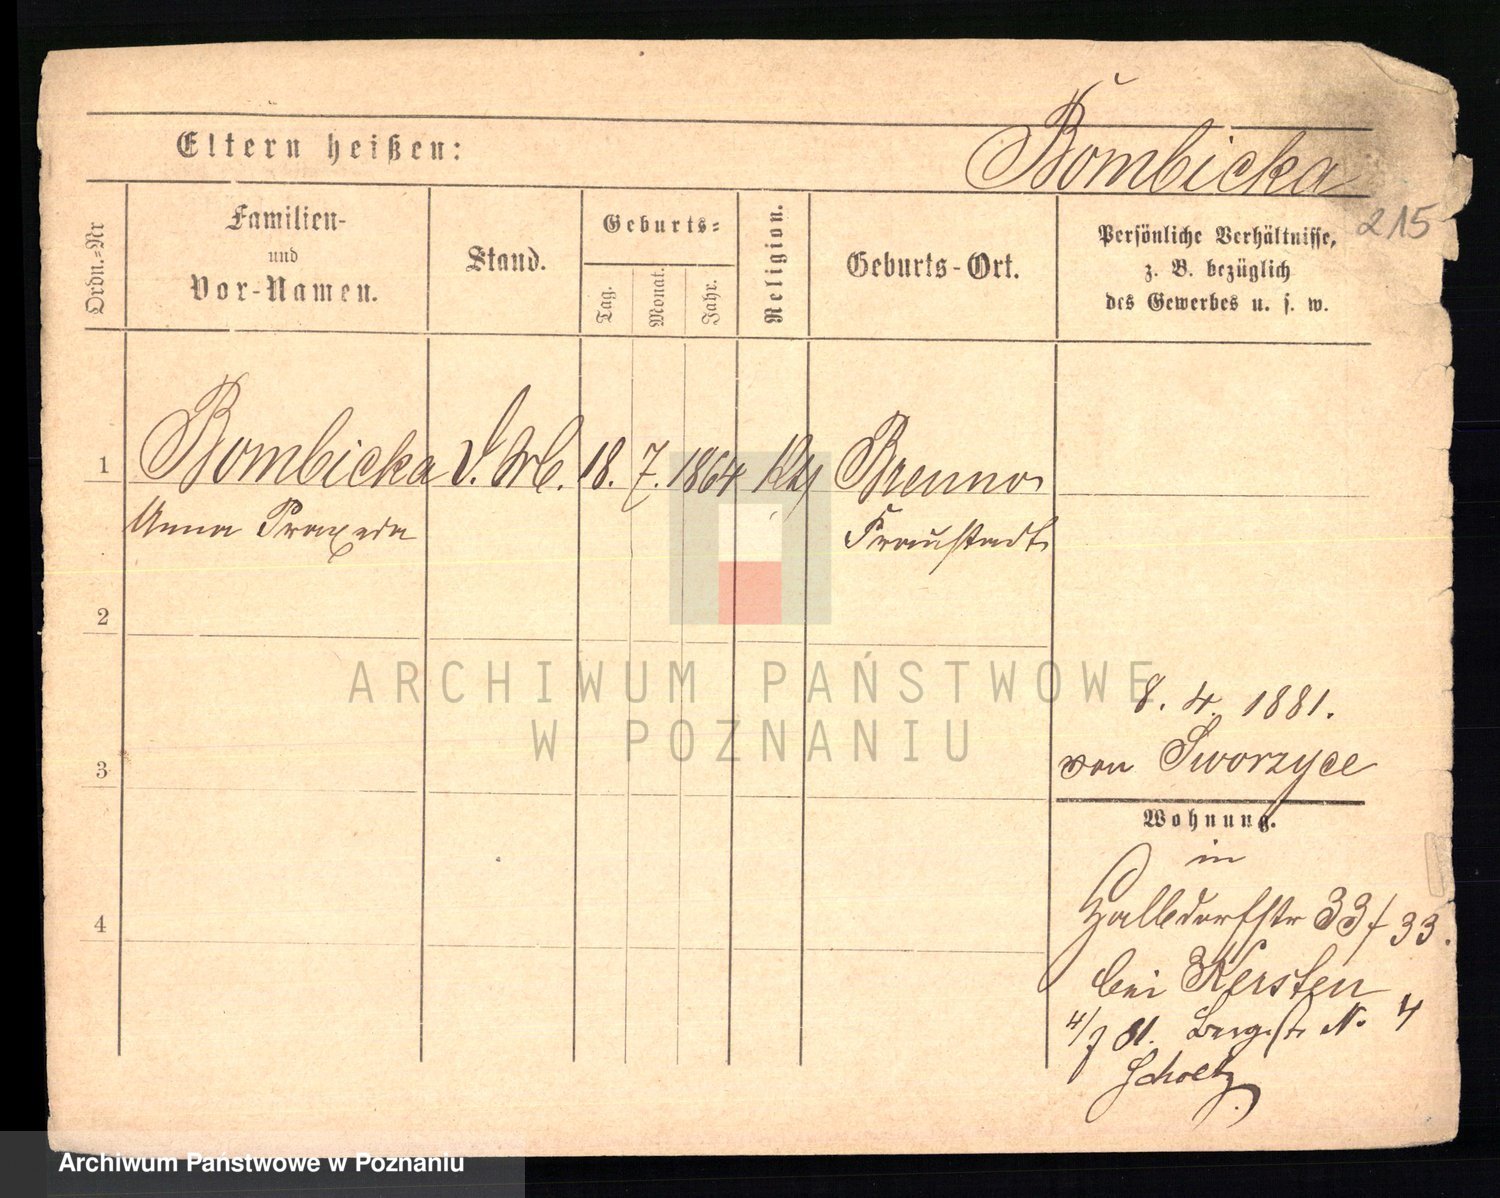 Eltern heißen:
Bombicka
215
Ordn.-Nr
Familien-
und
Vor-Namen.
Stand.
Geburts-
Tag.
Monat.
Jahr.
Religion.
Geburts-Ort.
Persönliche Verhältnisse,
z. B. bezüglich
des Gewerbes u. s. w.
1
Bombicka
18. 7. 1864
Kth
Brenno
Anna Praxeda
Fraustadt
2
ARCHIWUM PAŃSTWOWE
W POZNANIU
8. 4. 1881.
von Sworzyce
3
Wohnung.
in
Halbdorfstr 33/33.
bei Kersten
4
4/7 81. Bergstr N. 4
Scholtz
Archiwum Państwowe w Poznaniu